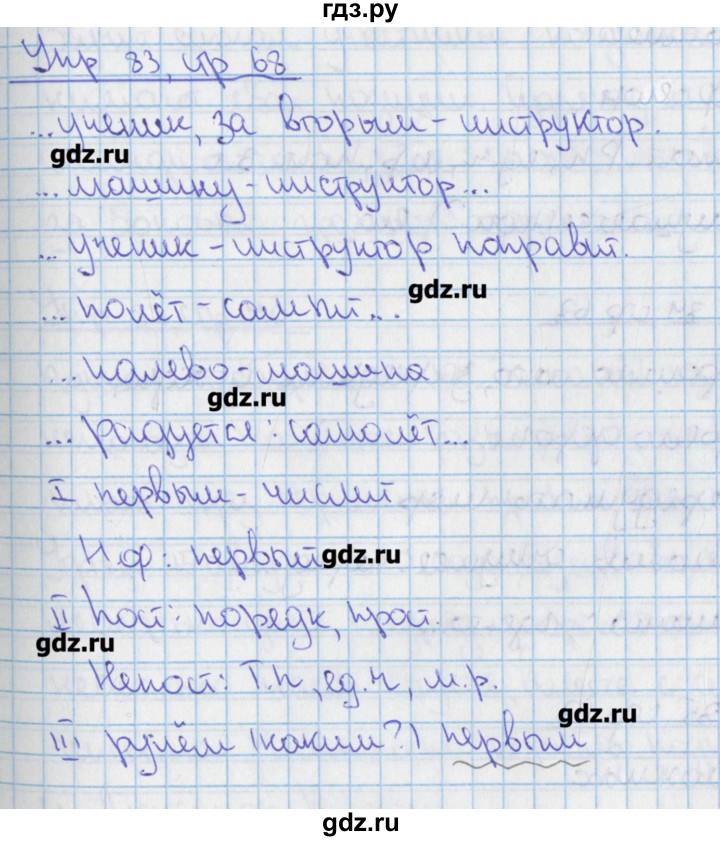 гдз.ру
Упр 83, стр 68
...ученик, за вторым - инструктор.
gdz.ru
...машину - инструктор...
... ученик - инструктор поправит.
gdz.ru
... полёт - самолёт...
... налево - машина
gdz.ru
... радуется: самолёт...
I первым - числит
Н.ф: первый
gdz.ru
II Пост: порядк, прост.
gdz.ru
Непост: Т.п, ед.ч, м.р.
gdz.ru
III рулём (каким?) первым
gdz.ru